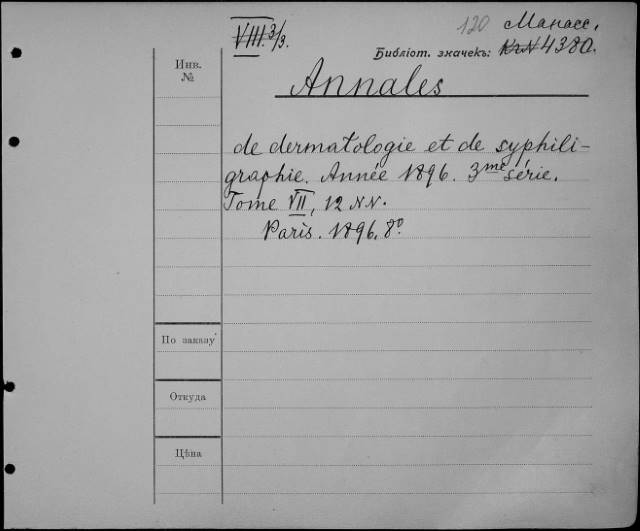 VIII. 3/3.
120 Манасс.
Библіот. значекъ: КъN 4380.
Инв.
№
Annales
de dermatologie et de syphili-
graphie. Année 1896. 3me série.
Tome VII, 12 NN.
Paris. 1896. 8º
По заказу
Откуда
Цѣна